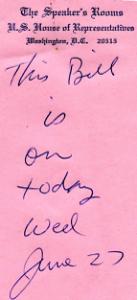 The Speaker's Rooms
U.S. House of Representatives
Washington, D.C. 20515
This Bill
is
on
today
Wed
June 27